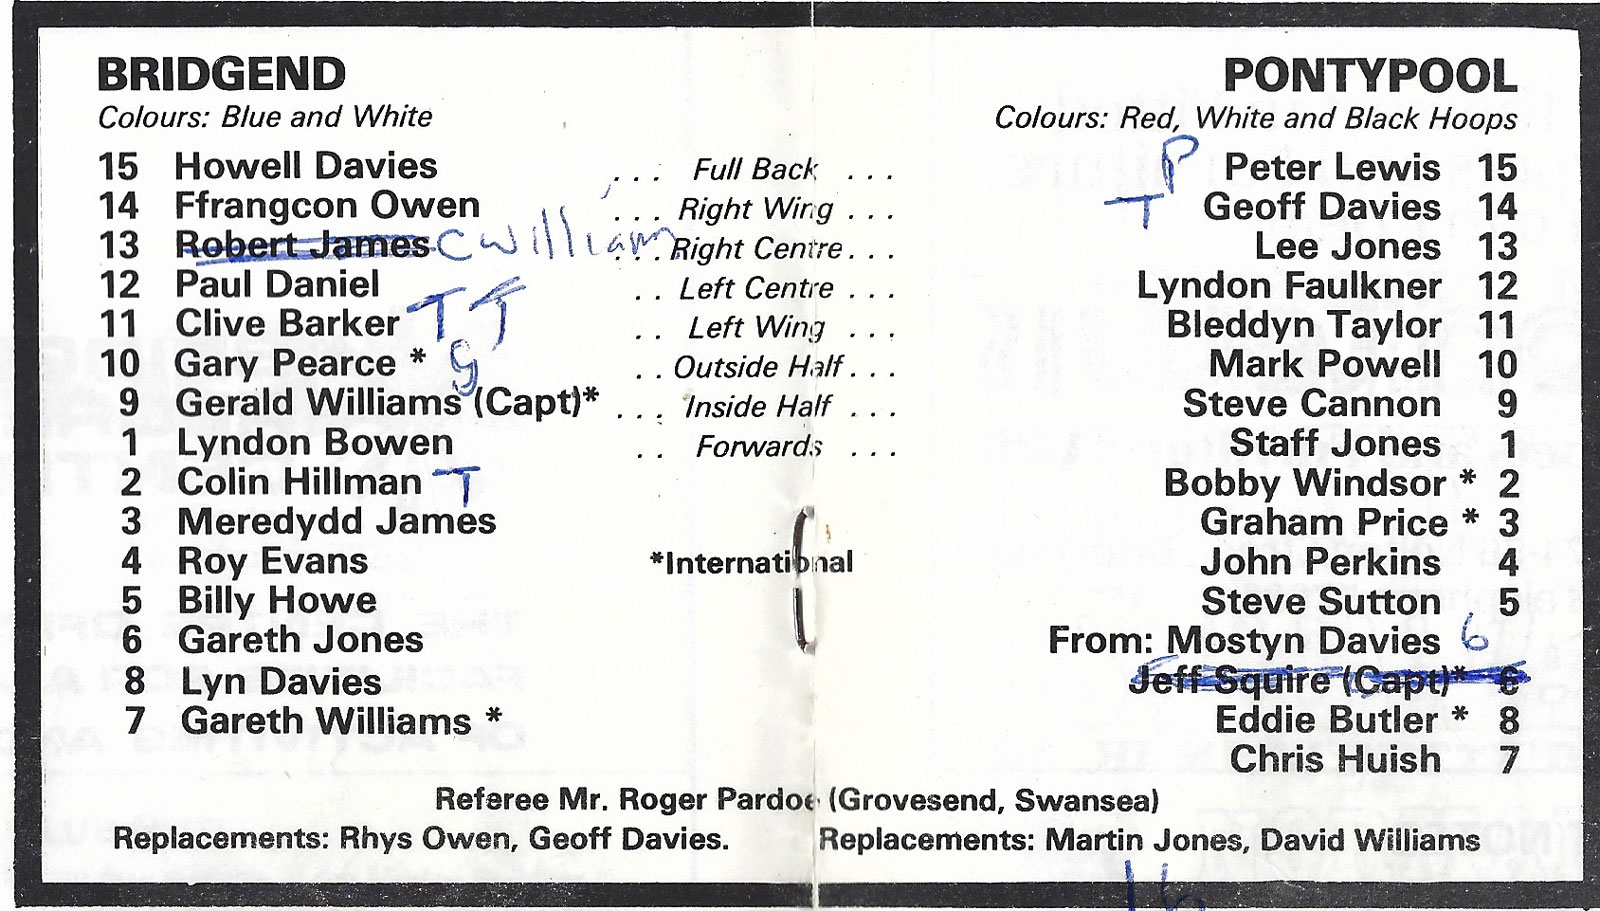 BRIDGEND PONTYPOOL
Colours: Blue and White Colours: Red, White and Black Hoops
15 Howell Davies ... Full Back ... P Peter Lewis 15
14 Ffrangcon Owen ... Right Wing ... T Geoff Davies 14
13 Robert James C William ... Right Centre ... Lee Jones 13
12 Paul Daniel .. Left Centre ... Lyndon Faulkner 12
11 Clive Barker T T .. Left Wing ... Bleddyn Taylor 11
10 Gary Pearce * g .. Outside Half ... Mark Powell 10
9 Gerald Williams (Capt)* ... Inside Half ... Steve Cannon 9
1 Lyndon Bowen .. Forwards ... Staff Jones 1
2 Colin Hillman T Bobby Windsor * 2
3 Meredydd James Graham Price * 3
4 Roy Evans *International John Perkins 4
5 Billy Howe Steve Sutton 5
6 Gareth Jones From: Mostyn Davies 6
8 Lyn Davies Jeff Squire (Capt)* 6
7 Gareth Williams * Eddie Butler * 8
Chris Huish 7
Referee Mr. Roger Pardoe (Grovesend, Swansea)
Replacements: Rhys Owen, Geoff Davies. Replacements: Martin Jones, David Williams
16